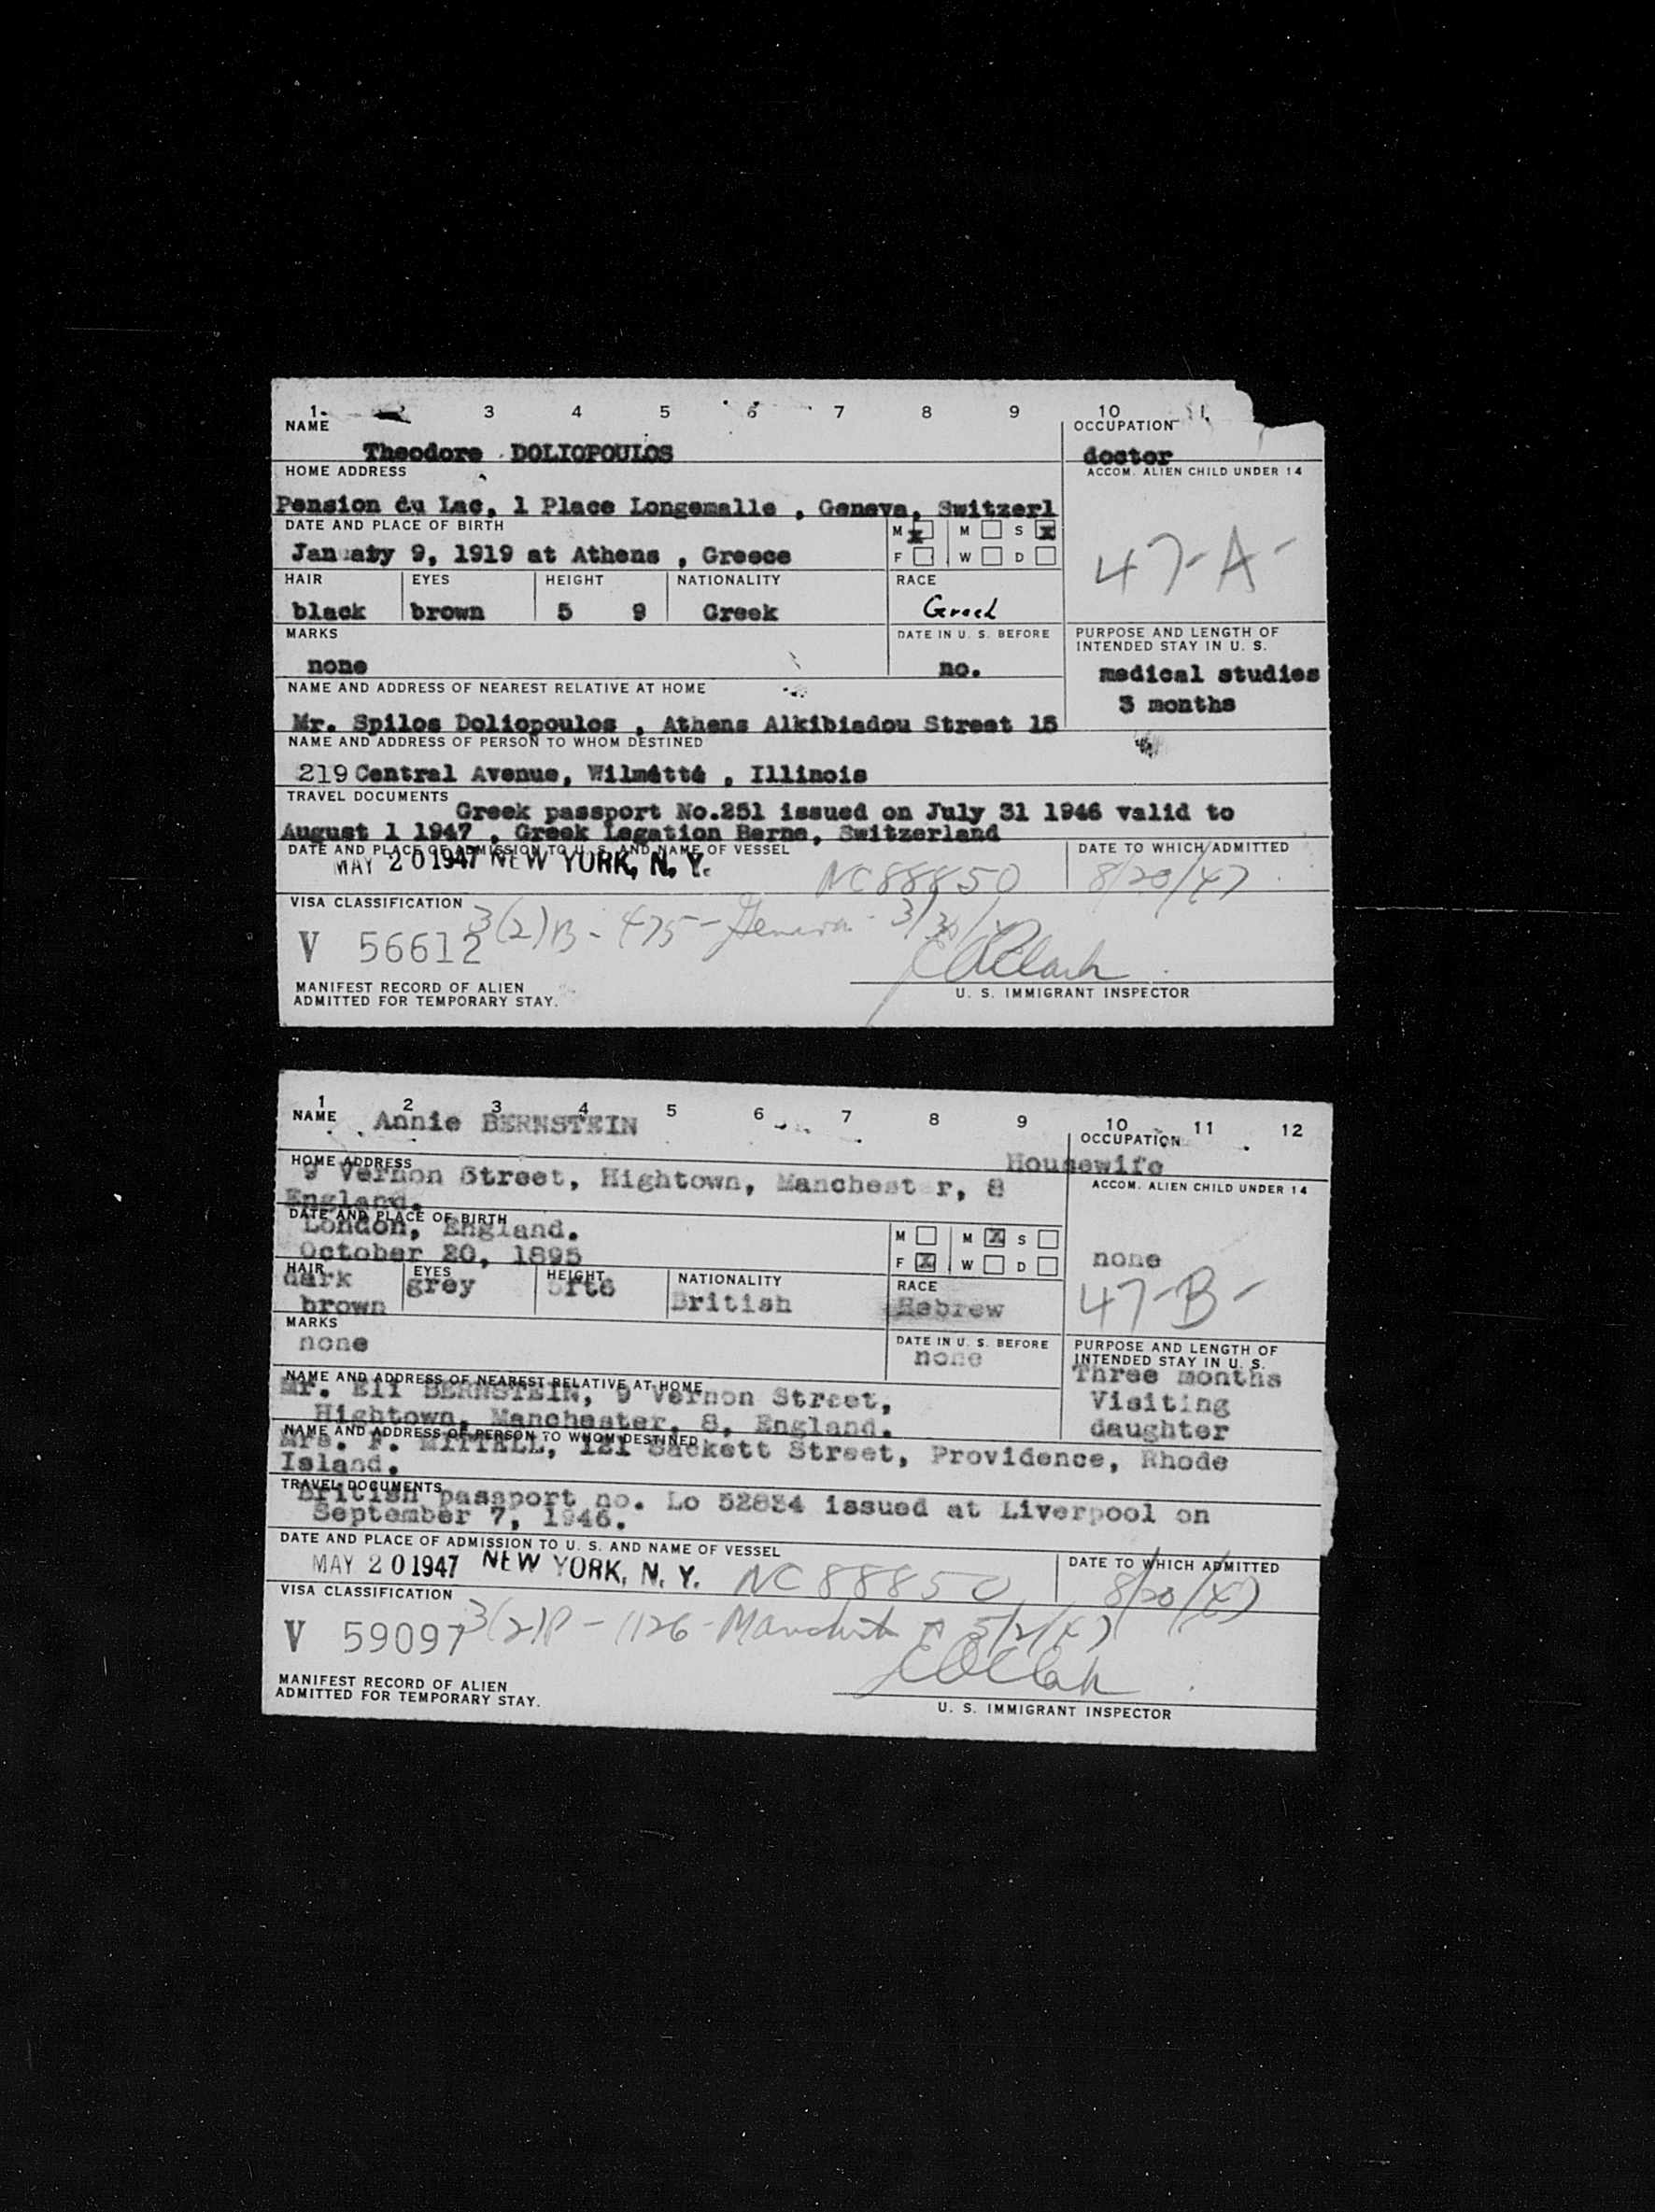 1 3 4 5 6 7 8 9 10 11
NAME OCCUPATION
Theodore DOLIOPOULOS doctor
HOME ADDRESS ACCOM. ALIEN CHILD UNDER 14
Pension du Lac, 1 Place Longemalle , Geneva, Switzerl
DATE AND PLACE OF BIRTH M x M S x
January 9, 1919 at Athens , Greece F W D
47-A-
HAIR EYES HEIGHT NATIONALITY RACE
black brown 5 9 Greek Greek
MARKS DATE IN U. S. BEFORE PURPOSE AND LENGTH OF
INTENDED STAY IN U. S.
none no. medical studies
NAME AND ADDRESS OF NEAREST RELATIVE AT HOME
3 months
Mr. Spilos Doliopoulos , Athens Alkibiadou Street 15
NAME AND ADDRESS OF PERSON TO WHOM DESTINED
219 Central Avenue, Wilmétté , Illinois
TRAVEL DOCUMENTS Greek passport No.251 issued on July 31 1946 valid to
August 1 1947 , Greek Legation Berne, Switzerland
DATE AND PLACE OF ADMISSION TO U. S. AND NAME OF VESSEL DATE TO WHICH ADMITTED
MAY 20 1947 NEW YORK, N. Y. NC 88850 8/20/47
VISA CLASSIFICATION 3(2)B - 475 - Geneva
V 56612
MANIFEST RECORD OF ALIEN
ADMITTED FOR TEMPORARY STAY.
U. S. IMMIGRANT INSPECTOR
1 2 3 4 5 6 7 8 9 10 11 12
NAME Annie BERNSTEIN OCCUPATION
HOME ADDRESS Housewife
9 Vernon Street, Hightown, Manchest r, 8 ACCOM. ALIEN CHILD UNDER 14
England.
DATE AND PLACE OF BIRTH
London, England. M M X S
October 20, 1895 F X W D none
47-B-
HAIR EYES HEIGHT NATIONALITY RACE
dark grey 5ft6 British Hebrew
brown
MARKS DATE IN U. S. BEFORE PURPOSE AND LENGTH OF
INTENDED STAY IN U. S.
none none Three months
NAME AND ADDRESS OF NEAREST RELATIVE AT HOME
Mr. Eli BERNSTEIN, 9 Vernon Street, Visiting
Hightown, Manchester, 8, England. daughter
NAME AND ADDRESS OF PERSON TO WHOM DESTINED
Mrs. F. MITTELL, 121 Sackett Street, Providence, Rhode
Island.
TRAVEL DOCUMENTS
British passport no. Lo 52834 issued at Liverpool on
September 7, 1946.
DATE AND PLACE OF ADMISSION TO U. S. AND NAME OF VESSEL DATE TO WHICH ADMITTED
MAY 20 1947 NEW YORK, N. Y. NC 88850 8/20/47
VISA CLASSIFICATION
V 59097 3(2)P - 1126 - 5/2/47
MANIFEST RECORD OF ALIEN
ADMITTED FOR TEMPORARY STAY.
U. S. IMMIGRANT INSPECTOR